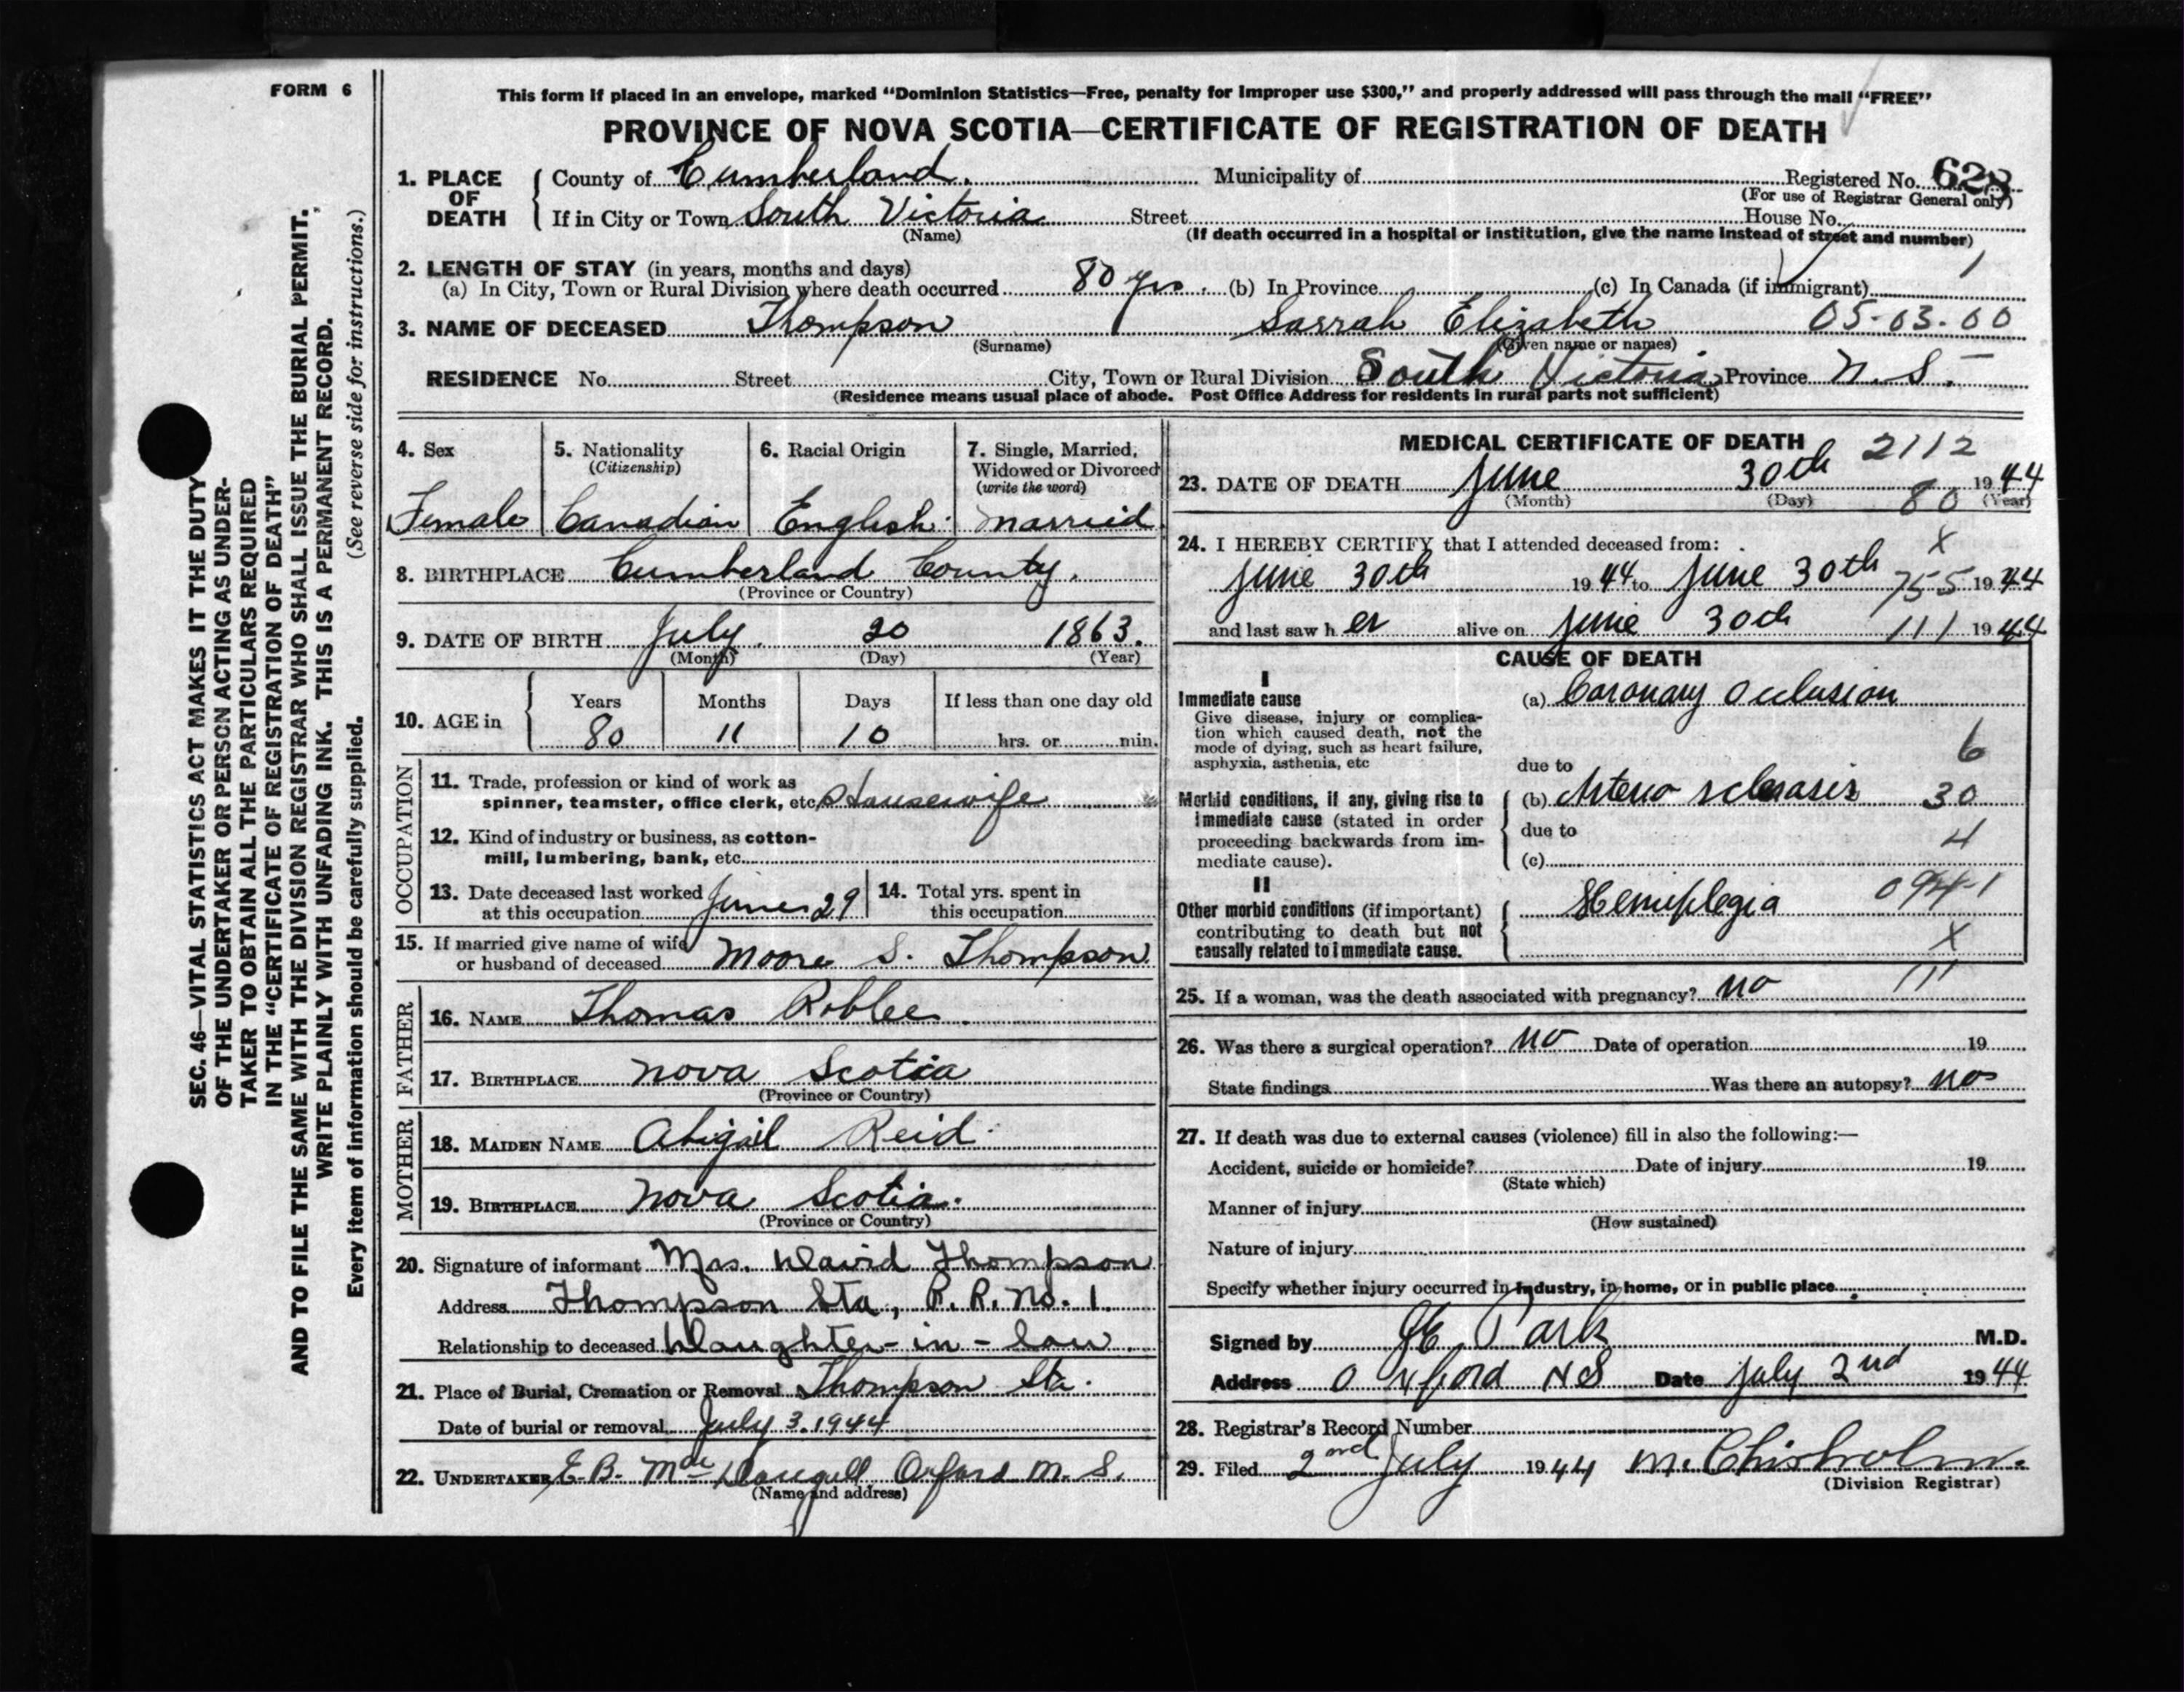 FORM 6
SEC. 46—VITAL STATISTICS ACT MAKES IT THE DUTY
OF THE UNDERTAKER OR PERSON ACTING AS UNDER-
TAKER TO OBTAIN ALL THE PARTICULARS REQUIRED
IN THE "CERTIFICATE OF REGISTRATION OF DEATH"
AND TO FILE THE SAME WITH THE DIVISION REGISTRAR WHO SHALL ISSUE THE BURIAL PERMIT.
WRITE PLAINLY WITH UNFADING INK. THIS IS A PERMANENT RECORD.
Every item of information should be carefully supplied. (See reverse side for instructions.)
This form if placed in an envelope, marked "Dominion Statistics—Free, penalty for improper use $300," and properly addressed will pass through the mail "FREE"
PROVINCE OF NOVA SCOTIA—CERTIFICATE OF REGISTRATION OF DEATH
1. PLACE OF DEATH
County of Cumberland. Municipality of Registered No. 628
(For use of Registrar General only)
If in City or Town South Victoria Street House No.
(Name) (If death occurred in a hospital or institution, give the name instead of street and number)
2. LENGTH OF STAY (in years, months and days) 1
(a) In City, Town or Rural Division where death occurred 80 yrs. (b) In Province (c) In Canada (if immigrant)
3. NAME OF DECEASED Thompson Sarrah Elizabeth 05-03-00
(Surname) (Given name or names)
RESIDENCE No. Street City, Town or Rural Division South Victoria Province N.S.
(Residence means usual place of abode. Post Office Address for residents in rural parts not sufficient)
4. Sex
Female
5. Nationality
(Citizenship)
Canadian
6. Racial Origin
English
7. Single, Married,
Widowed or Divorced
(write the word)
Marreid
8. BIRTHPLACE Cumberland County.
(Province or Country)
9. DATE OF BIRTH July 20 1863.
(Month) (Day) (Year)
10. AGE in Years Months Days If less than one day old
80 11 10 hrs. or min.
OCCUPATION
11. Trade, profession or kind of work as
spinner, teamster, office clerk, etc. Housewife
12. Kind of industry or business, as cotton-
mill, lumbering, bank, etc.
13. Date deceased last worked
at this occupation June 29
14. Total yrs. spent in
this occupation
15. If married give name of wife
or husband of deceased Moore S. Thompson
FATHER
16. NAME Thomas Roblee
17. BIRTHPLACE Nova Scotia
(Province or Country)
MOTHER
18. MAIDEN NAME Abigail Reid
19. BIRTHPLACE Nova Scotia.
(Province or Country)
20. Signature of informant Mrs. David Thompson
Address Thompson Sta, R.R. No. 1
Relationship to deceased Daughter-in-law.
21. Place of Burial, Cremation or Removal Thompson Sta.
Date of burial or removal July 3. 1944
22. UNDERTAKER E.B. MacDougall Oxford N.S.
(Name and address)
MEDICAL CERTIFICATE OF DEATH 2112
23. DATE OF DEATH June 30th 1944
(Month) (Day) 80 (Year)
24. I HEREBY CERTIFY that I attended deceased from: X
June 30th 1944 to June 30th 755 1944
and last saw her alive on June 30th 111 1944
CAUSE OF DEATH
I
Immediate cause
Give disease, injury or complica-
tion which caused death, not the
mode of dying, such as heart failure,
asphyxia, asthenia, etc
(a) Coronary Occlusion
6
due to
Morbid conditions, if any, giving rise to
immediate cause (stated in order
proceeding backwards from im-
mediate cause).
(b) Arterio sclerosis 30
due to 4
(c)
II
Other morbid conditions (if important)
contributing to death but not
causally related to immediate cause.
Hemiplegia 094-1
X
25. If a woman, was the death associated with pregnancy? no 111
26. Was there a surgical operation? no Date of operation 19
State findings Was there an autopsy? no
27. If death was due to external causes (violence) fill in also the following:—
Accident, suicide or homicide? Date of injury 19
(State which)
Manner of injury
(How sustained)
Nature of injury
Specify whether injury occurred in industry, in home, or in public place
Signed by Park M.D.
Address Oxford NS Date July 2nd 1944
28. Registrar's Record Number
29. Filed 2nd July 1944 M. Chisholm.
(Division Registrar)